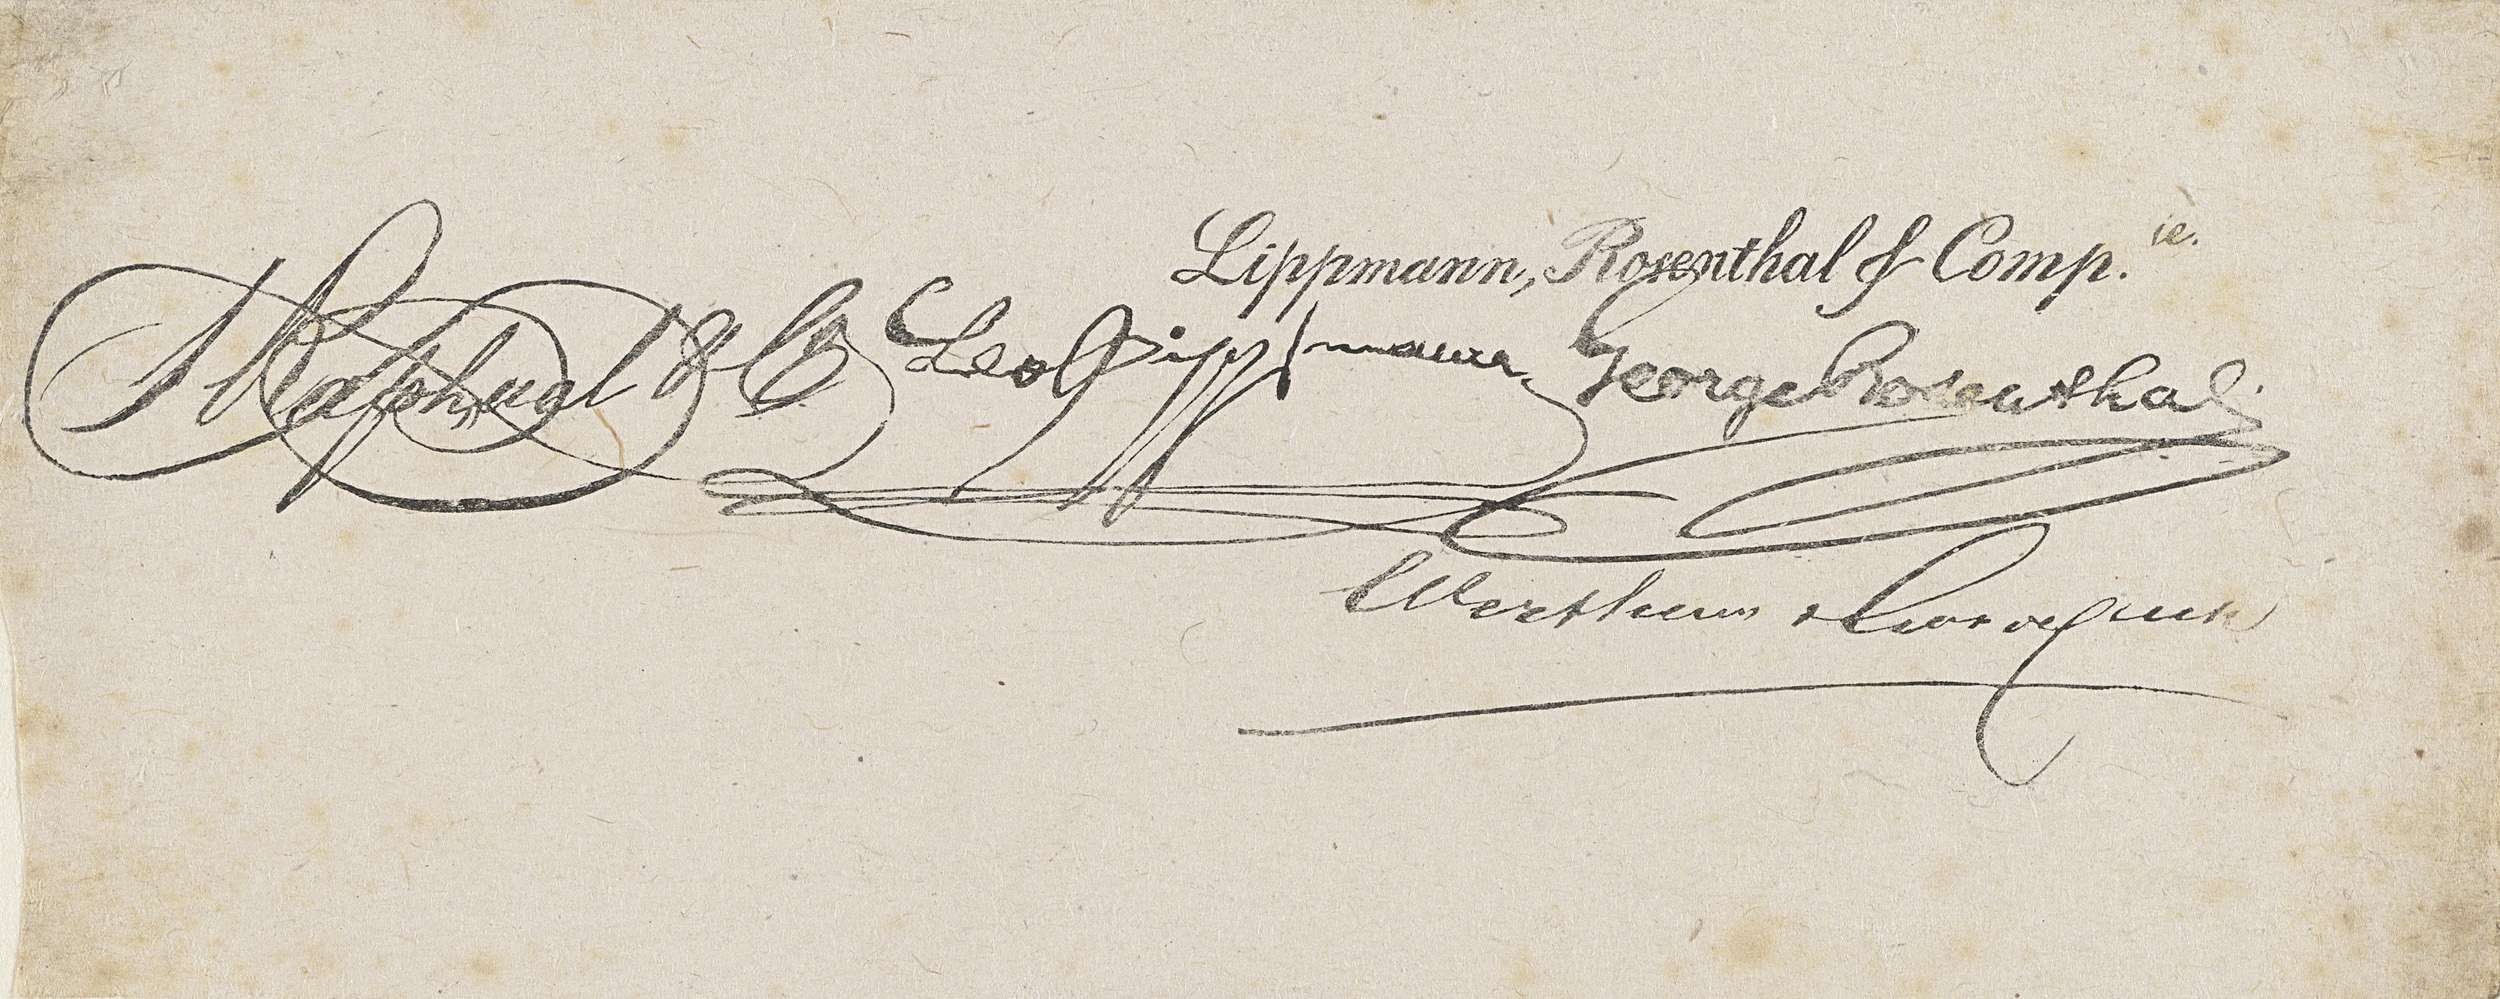 Lippmann, Rosenthal & Comp.ie.
Raphael & Co Leo Lippmann, George Rosenthal
Wertheim &